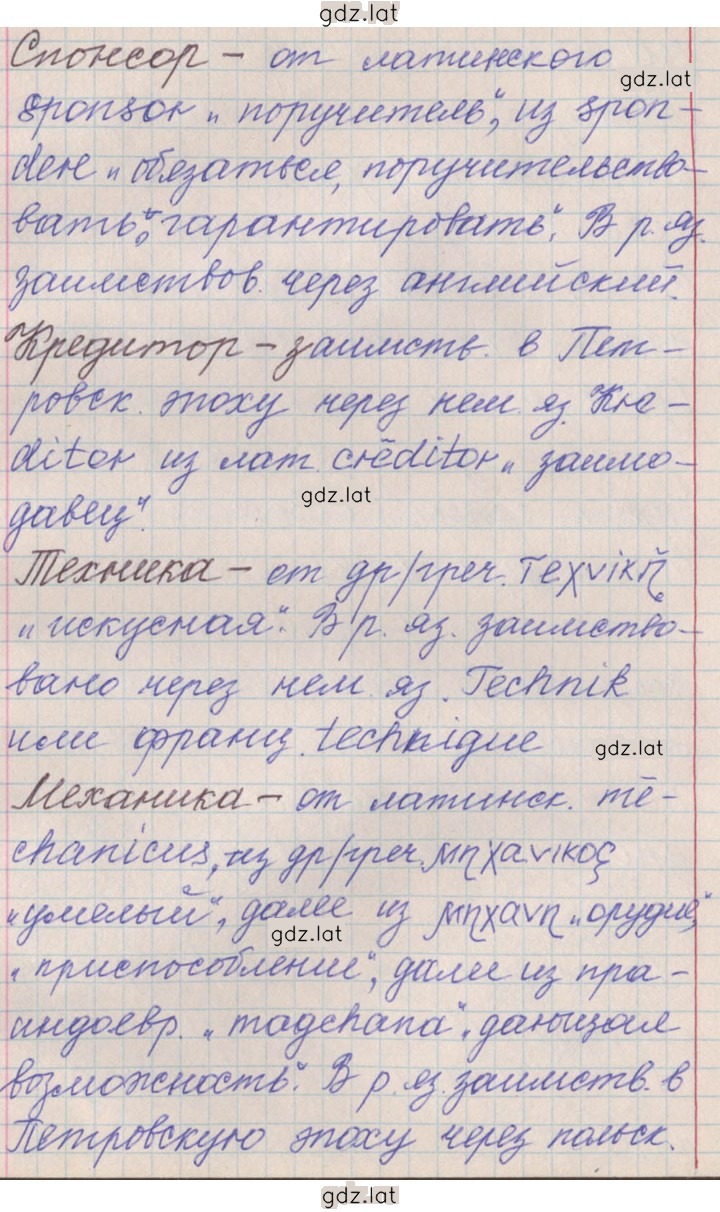 gdz.lat
Спонсор – от латинского
gdz.lat
sponsor „поручитель“, из spon-
dere „обязаться, поручительство-
вать“, „гарантировать“. В р. яз.
заимствов. через английский.
Кредитор – заимств. в Пет-
ровск. эпоху через нем. яз. Kre-
ditor из лат. crēditor „заимо-
gdz.lat
давец“.
Техника – от др/греч. τεχνικῆ
„искусная“. В р. яз. заимство-
вано через нем. яз. Technik
или франц. technique
gdz.lat
Механика – от латинск. mē-
chanicus, из др/греч. μηχανικος
„умелый“, далее из μηχανη „орудие“,
gdz.lat
„приспособление“, далее из пра-
индоевр. „magchana“ „дающая
возможность“. В р. яз. заимств. в
Петровскую эпоху через польск.
gdz.lat